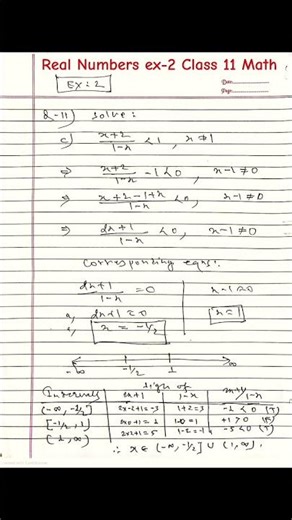 Real Numbers ex-2 Class 11 Math
EX: 2
Q-11) solve:
c) x+2/1-x < 1, x ≠ 1
⇒ x+2/1-x - 1 < 0, x-1 ≠ 0
⇒ x+2-1+x/1-x < 0, x-1 ≠ 0
⇒ 2x+1/1-x < 0, x-1 ≠ 0
Corresponding eqns:
2x+1/1-x = 0 x-1 = 0
2x+1 = 0 x = 1
x = -1/2
-∞ -1/2 1 ∞
sign of
Intervals 2x+1 1-x /1-x
(-∞, -1/2] 2x-2+1=-3 1+2=3 -1 < 0 (T)
[-1/2, 1) 2x0+1=1 1-0=1 +1 > 0 (F)
(1, ∞) 2x2+1=5 1-2=-1 -5 < 0 (T)
∴ x ∈ (-∞, -1/2] ∪ (1, ∞).